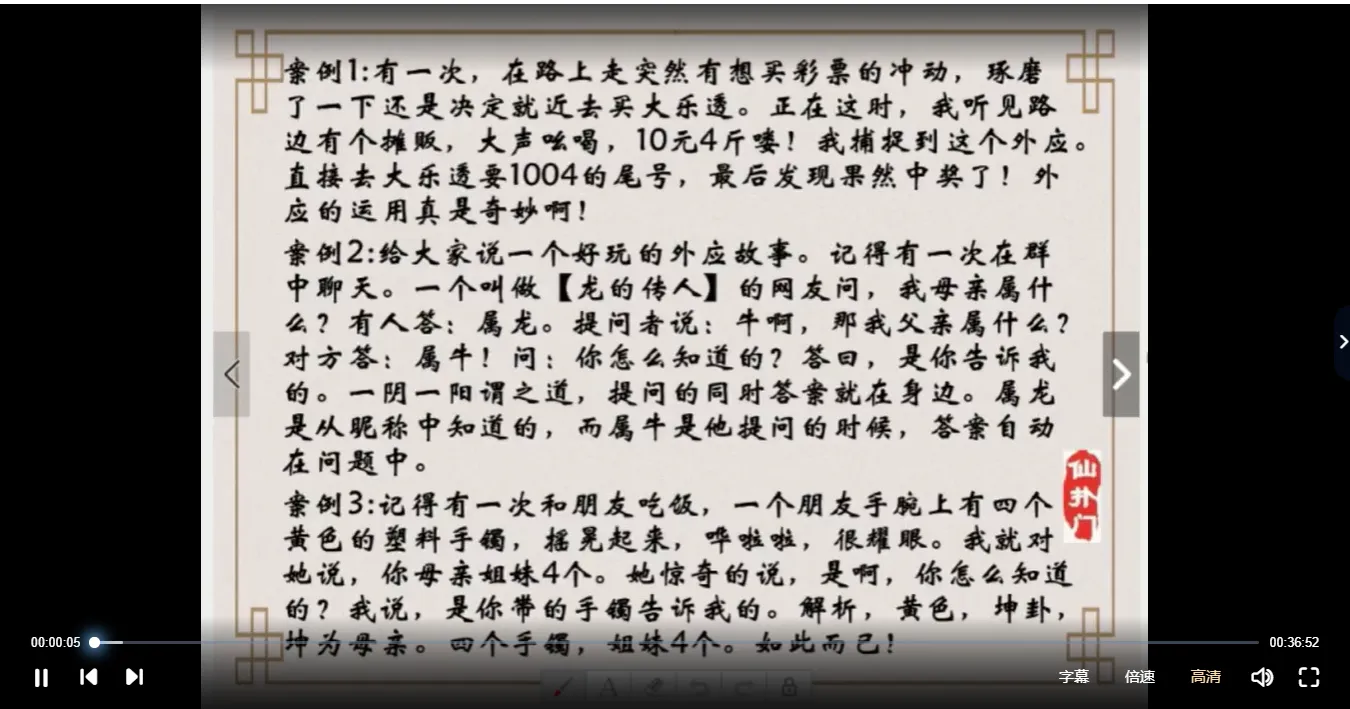 案例1:有一次，在路上走突然有想买彩票的冲动，琢磨
了一下还是决定就近去买大乐透。正在这时，我听见路
边有个摊贩，大声吆喝，10元4斤喽！我捕捉到这个外应。
直接去大乐透要1004的尾号，最后发现果然中奖了！外
应的运用真是奇妙啊！
案例2:给大家说一个好玩的外应故事。记得有一次在群
中聊天。一个叫做【龙的传人】的网友问，我母亲属什
么？有人答：属龙。提问者说：牛啊，那我父亲属什么？
对方答：属牛！问：你怎么知道的？答曰，是你告诉我
的。一阴一阳谓之道，提问的同时答案就在身边。属龙
是从昵称中知道的，而属牛是他提问的时候，答案自动
在问题中。
仙扑门
案例3:记得有一次和朋友吃饭，一个朋友手腕上有四个
黄色的塑料手镯，摇晃起来，哗啦啦，很耀眼。我就对
她说，你母亲姐妹4个。她惊奇的说，是啊，你怎么知道
的？我说，是你带的手镯告诉我的。解析，黄色，坤卦，
坤为母亲。四个手镯，姐妹4个。如此而已！
00:00:05
00:36:52
字幕
倍速
高清
A